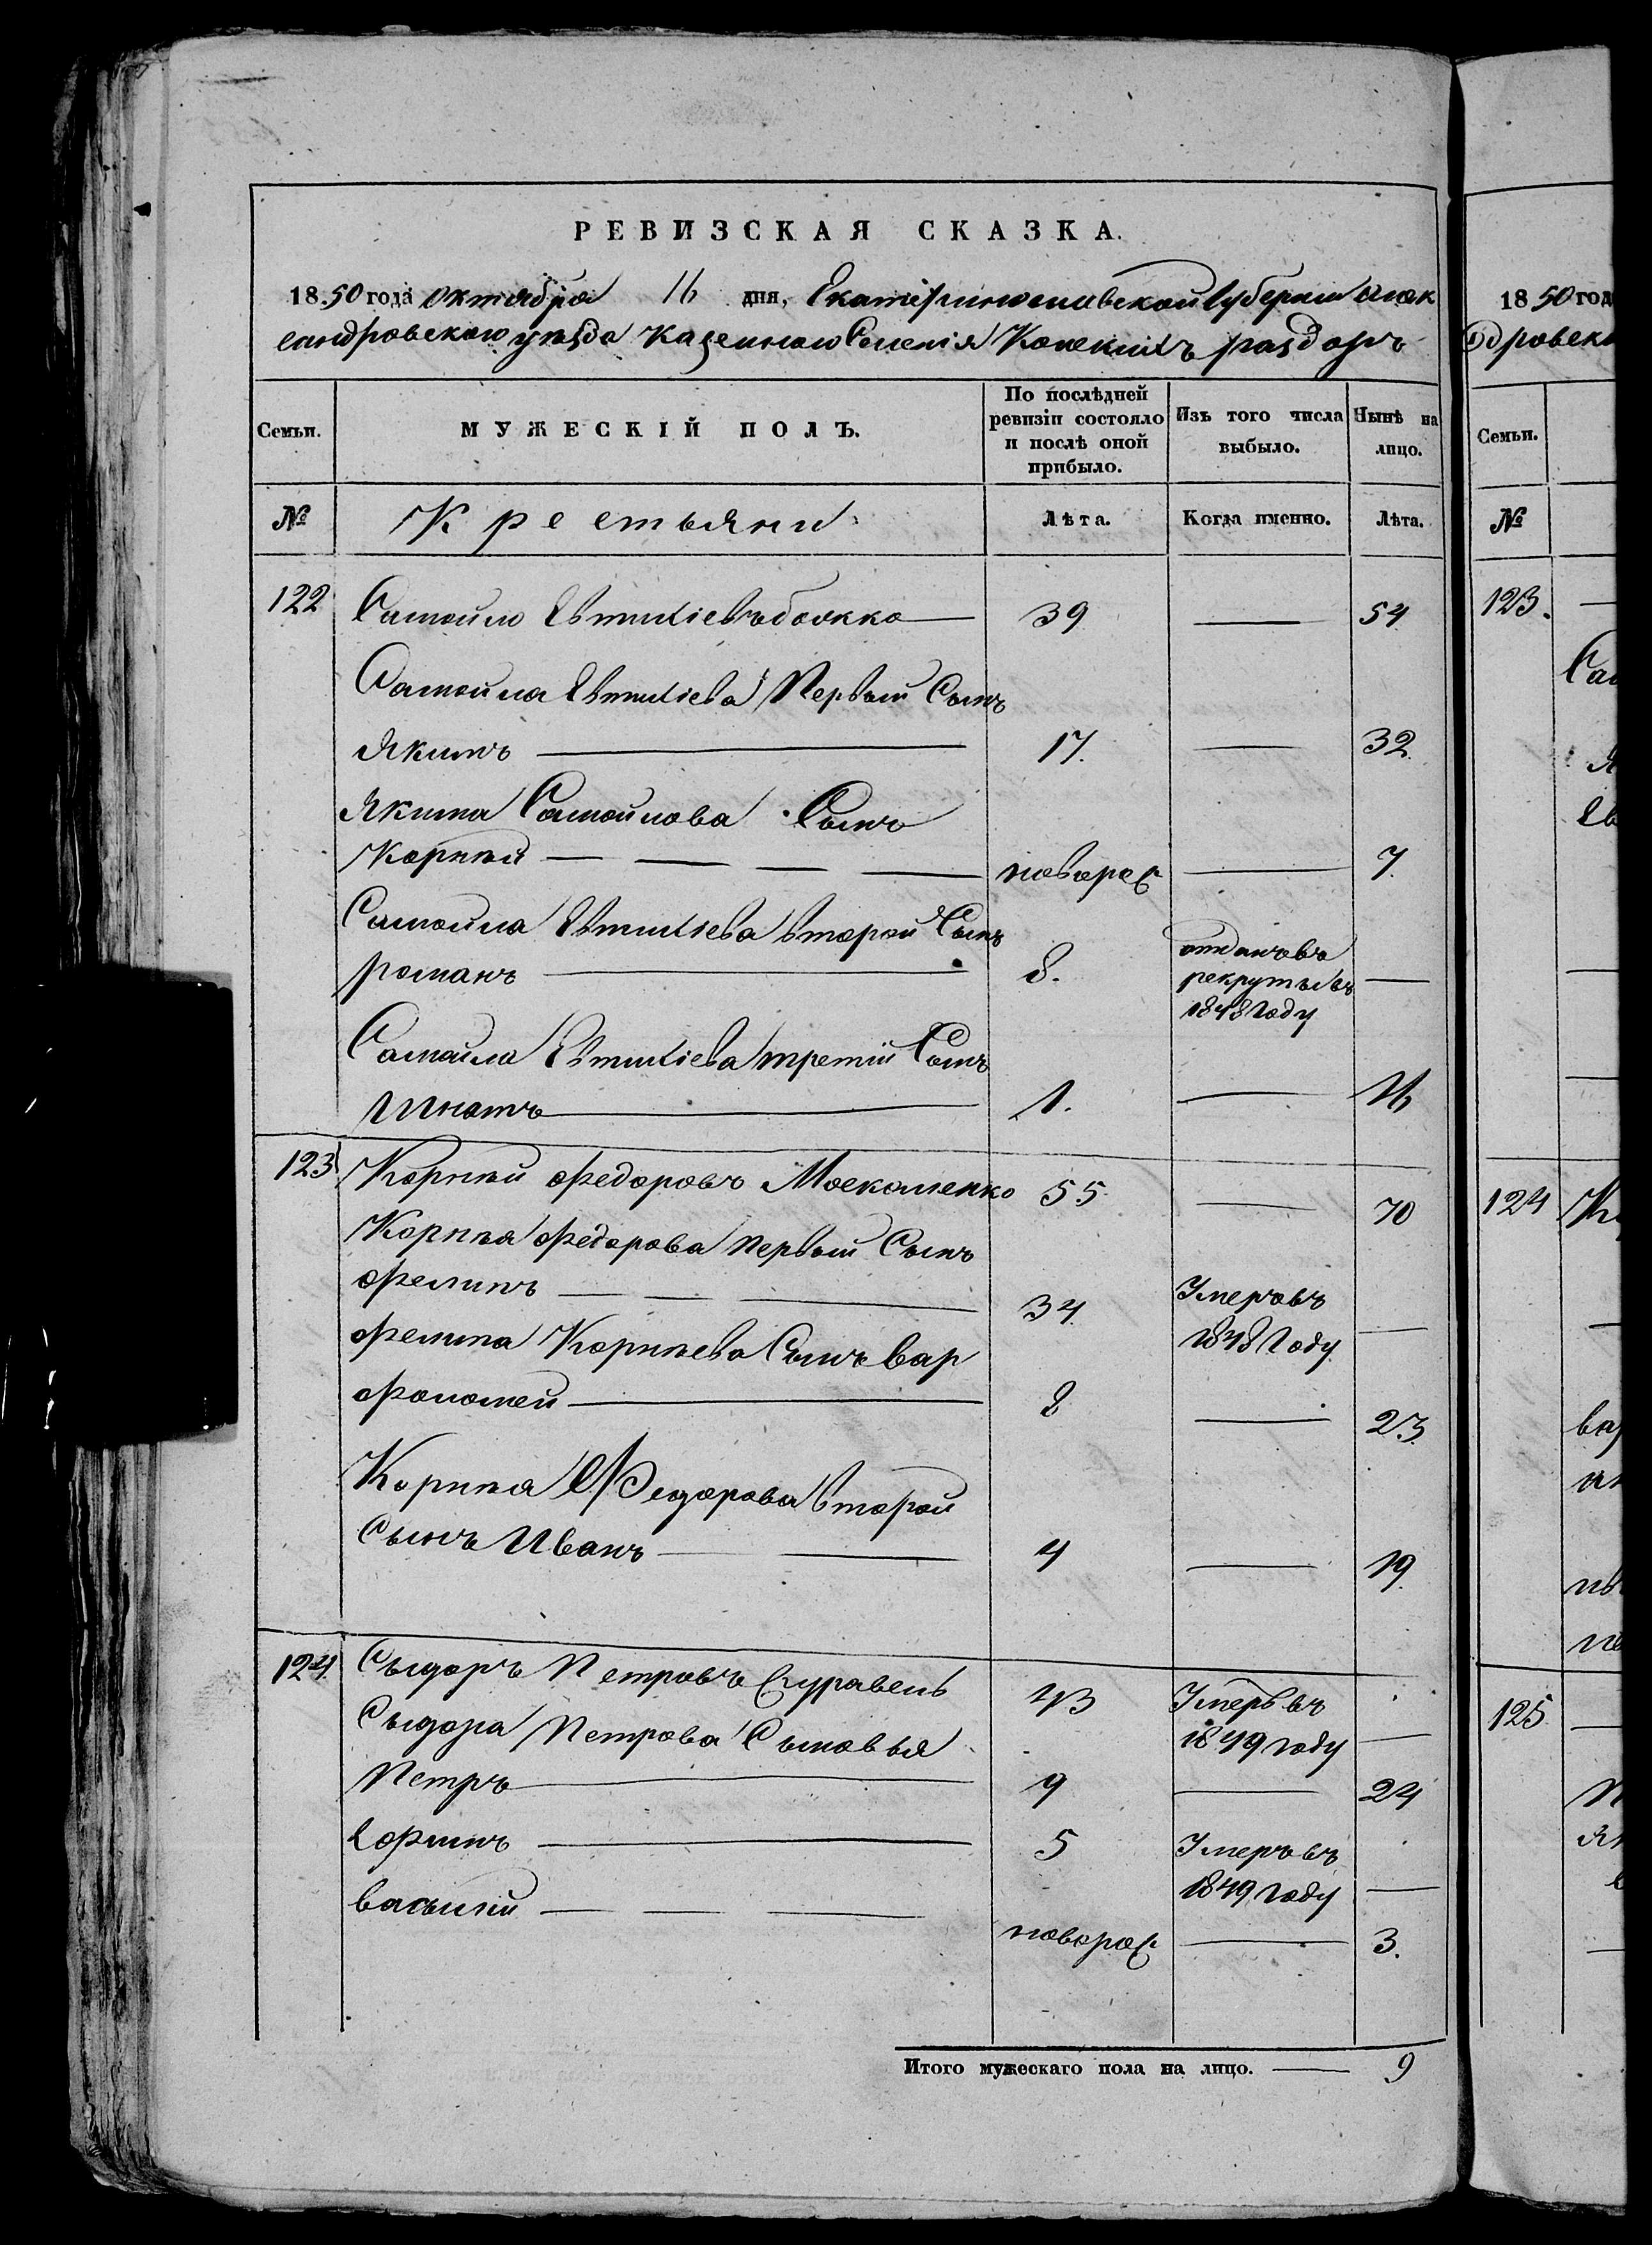 РЕВИЗСКАЯ СКАЗКА.
18 50 года октября 16 дня, Екатеринославской Губернии Алек
сандровского уезда Казенного Селенія Конскихъ раздоръ
Семьи. МУЖЕСКІЙ ПОЛЪ. По послѣдней ревизіи состояло и послѣ оной прибыло. Изъ того числа выбыло. Нынѣ на лицо.
№ Крестьяни Лѣта. Когда именно. Лѣта.
122 Самойло Евтихіевъ божко 39 — 54
Самойла Евтихіева Первый Сынъ
Якимъ — 17. — 32.
Якима Самойлова Сынъ
Корнѣй — новорож — 7.
Самойла Евтихіева второй Сынъ
романъ — 8. отданъ въ рекруты въ 1848 Году —
Самойла Евтихіева третій Сынъ
Игнатъ — 1. — 16
123 Корнѣй Федоровъ Москаленко 55 — 70
Корнѣя Федорова первый Сынъ
филипъ — 34 Умеръ въ 1848 Году —
филипа Корнѣева Сынъ вар
фоломей — 8 — 23.
Корнѣя Федорова второй
Сынъ Иванъ — 4 — 19.
124 Сыдоръ Петровъ Журавель 43 Умеръ въ 1849 году —
Сыдора Петрова Сыновья
Петръ — 9 — 24
Ефимъ — 5 Умеръ въ 1849 году —
василий — новорож — 3.
Итого мужескаго пола на лицо. — 9
18 50 год
дровск
Семьи.
№
123.
124
125